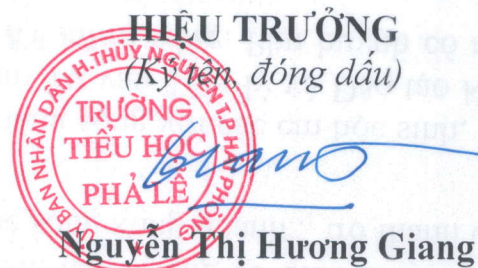 HIỆU TRƯỞNG
(Ký tên, đóng dấu)
ỦY BAN NHÂN DÂN H.THỦY NGUYÊN T.P HẢI PHÒNG
TRƯỜNG
TIỂU HỌC
PHẢ LỄ
Nguyễn Thị Hương Giang